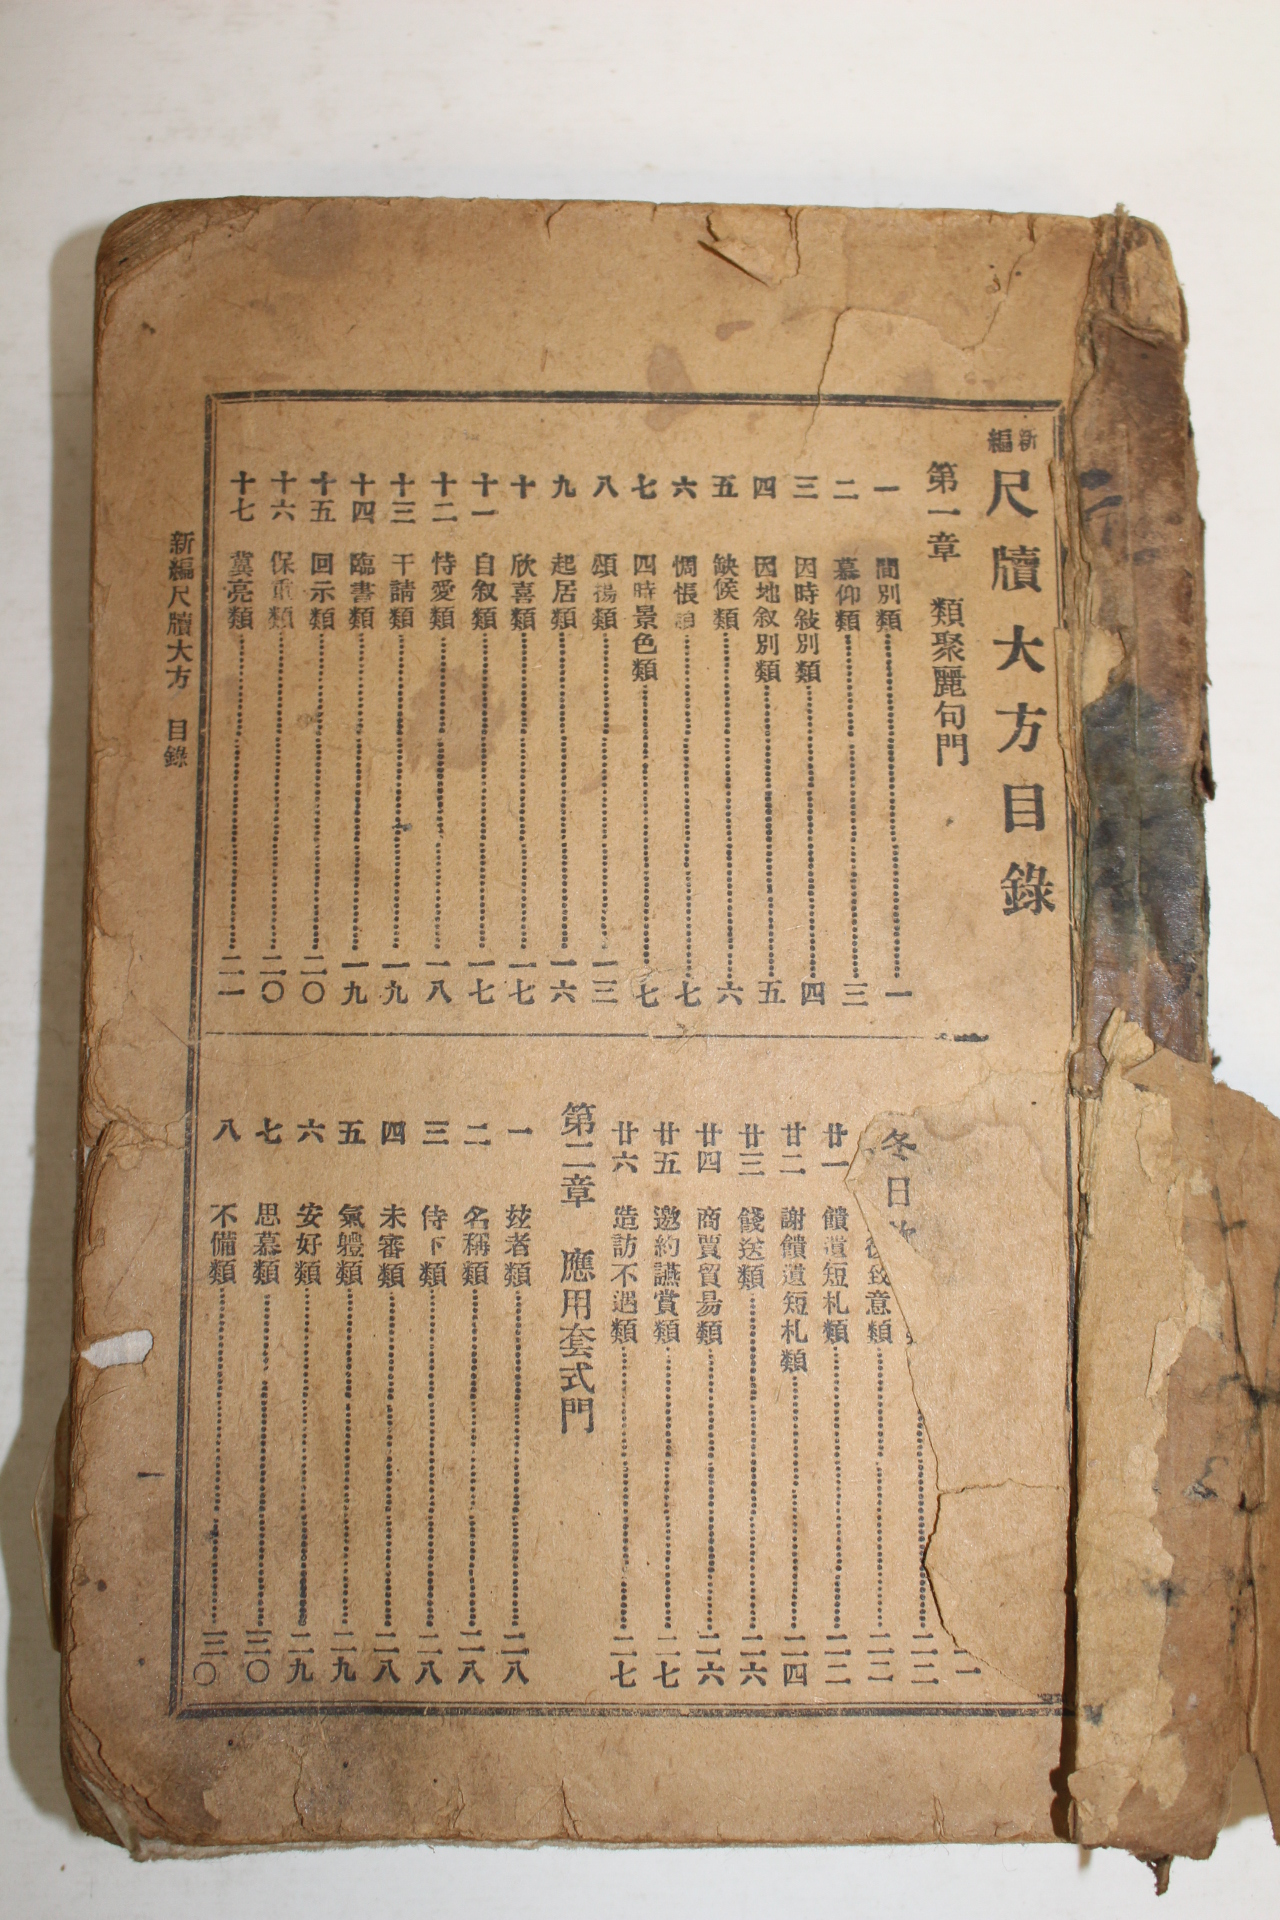 新編 尺牘大方目錄
第一章 類聚麗句門
一 間別類 一
二 慕仰類 三
三 因時敍別類 四
四 因地敘別類 五
五 缺候類 六
六 惆悵 七
七 四時景色類 七
八 頌揚類 一三
九 起居類 一六
十 欣喜類 一七
十一 自敘類 一七
十二 恃愛類 一八
十三 干請類 一九
十四 臨書類 一九
十五 回示類 二〇
十六 保重類 二〇
十七 冀亮類 二一
一
二二
冬日
致意類 二二
廿一 饋遺短札類 二二
廿二 謝饋遺短札類 二四
廿三 餞送類 二六
廿四 商賈貿易類 二六
廿五 邀約讌賞類 二七
廿六 造訪不遇類 二七
第二章 應用套式門
一 玆者類 二八
二 名稱類 二八
三 侍下類 二八
四 未審類 二八
五 氣軆類 二九
六 安好類 二九
七 思慕類 三〇
八 不備類 三〇
新編尺牘大方 目錄 一